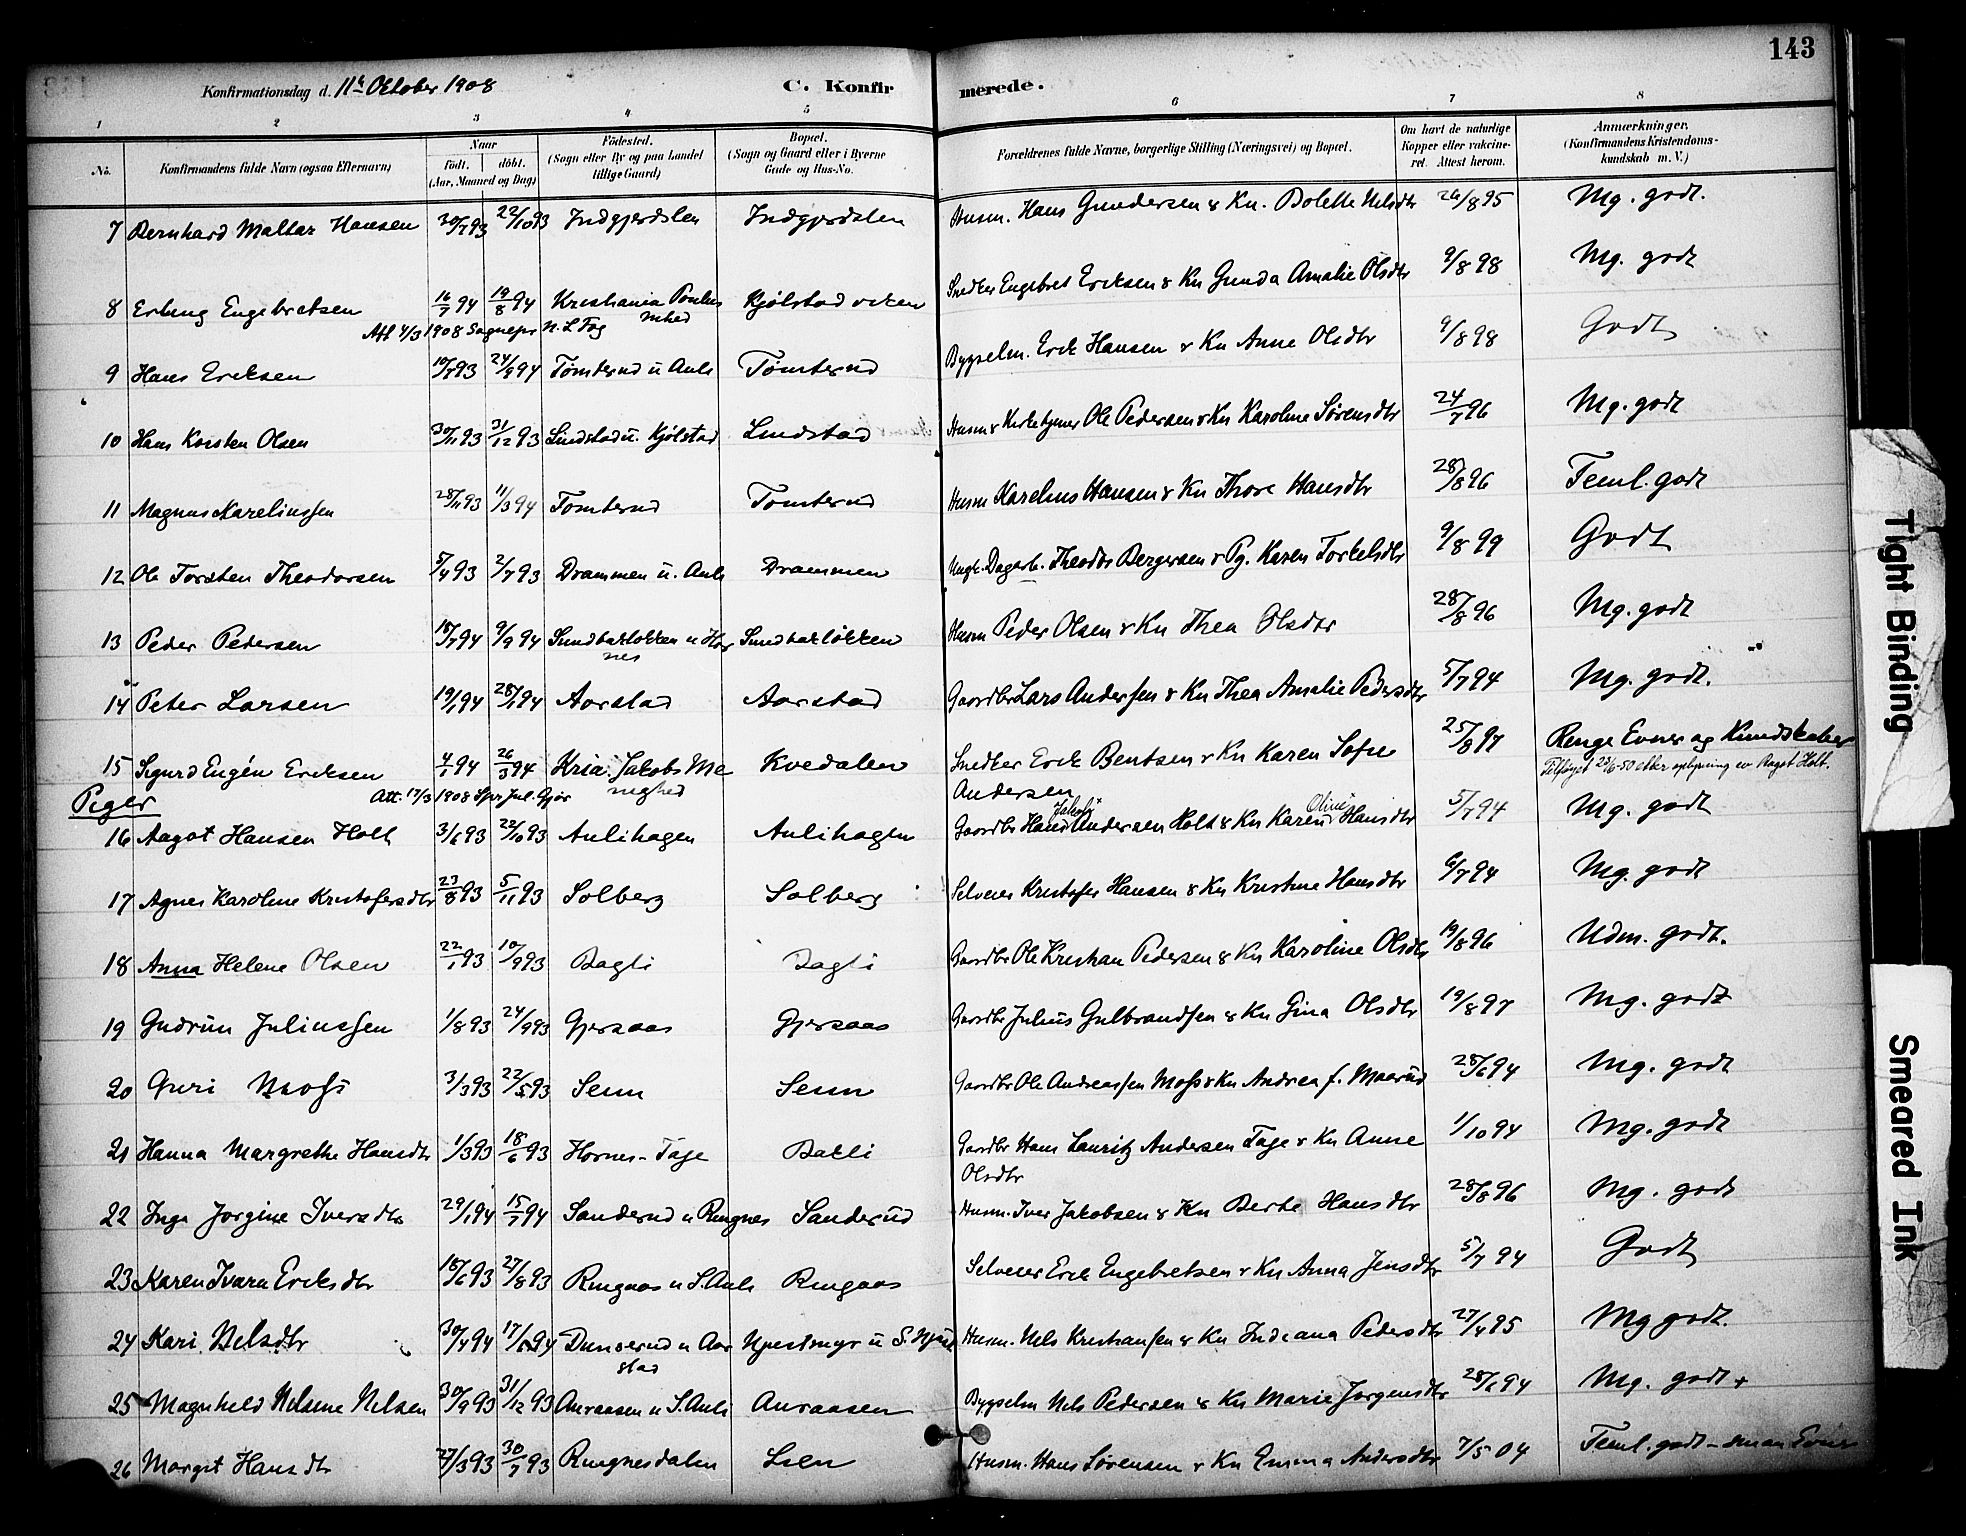 143
Konfirmationsdag d. 11te Oktober 1908 C. Konfirmerede.
1 2 3 4 5 6 7 8
No. Konfirmandens fulde Navn (ogsaa Efternavn) Naar født. døbt. (Aar, Maaned og Dag) Fødested. (Sogn eller By og paa Landet tillige Gaard) Bopæl. (Sogn og Gaard eller i Byerne Gade og Hus-No. Forældrenes fulde Navne, borgerlige Stilling (Næringsvei) og Bopæl. Om havt de naturlige Kopper eller vaccineret. Attest herom. Anmærkninger. (Konfirmandens Kristendomskundskab m. V.)
7 Bernhard Maltar Hansen 30/7 93 22/10 93 Indgjerdslen Indgjerdslen Husm. Hans Gundersen & Kn. Bolette Nilsdtr 26/8 95 Mg. godt.
8 Erling Engebretsen 16/7 94 19/8 94 Kristiania Paulus mhed Kjølstad Snedker Engebret Ericksen & Kn Gunda Amalie Olsdtr 9/8 98 Mg. godt
Att 4/3 1908 Sognepr N. L Fog
9 Hans Ericksen 24/3 94 Tømterud u Auli Tomterud Bygselm. Erck Hansen & Kn Anne Olsdtr 9/8 98 Godt
10 Hans Korsten Olsen 30/11 93 31/12 93 Lindstad u. Kjølstad Lindstad Husm & Kirketjener Ole Pedersen & Kn Karoline Sørensdtr 24/7 96 Mg. godt
11 Magnus Karelinssen 28/11 93 11/3 94 Tomterud Tomterud Husm Karelius Hansen & Kn Thore Hansdtr 28/8 96 Teml. godt
12 Ole Torsten Theodorsen 5/4 93 2/7 93 Drammen u. Auli Drammen Ungk. Dagarb. Theodor Bergersen & Pg. Karen Torkelsdtr 9/8 99 Godt
13 Peder Pedersen 18/7 94 9/9 94 Sundbakløkken u Hor nes Sundbakløkken Husm Peder Olsen & Kn Thea Olsdtr 28/8 96 Mg. godt
14 Peter Larsen 19/1 94 28/1 94 Aarstad Aarstad Gaardbr Lars Andersen & Kn Thea Amalie Pedersdtr 5/7 94 Mg. godt.
15 Sigurd Eugén Ericksen 4/1 94 26/3 94 Kria Jakobs Me nighed Kvedalen Snedker Erck Bentsen & Kn Karen Sofie Andersen 25/8 97 Ringe Evner og Kundskaber
Att. 17/3 1908 Spr Jul. Gjør
Tilføyet 23/6-50 etter oplysning av Aagot Holt.
Piger
16 Aagot Hansen Holt 3/6 93 22/10 93 Aulihagen Aulihagen Gaardbr Hans Jakob Andersen Holt & Kn Karen Oline Hansdtr 5/7 94 Mg. godt
17 Agnes Karoline Kristofersdtr 23/8 93 5/11 93 Solberg Solberg Selveier Kristofer Hansen & Kn Kristine Hansdtr 6/7 94 Mg. godt
18 Anna Helene Olsen 22/1 93 10/9 93 Dagli Dagli Gaardbr Ole Kristian Pedersen & Kn Karoline Olsdtr 19/8 96 Udm. godt.
19 Gudrun Juliussen 1/8 93 24/9 93 Gjersaas Gjersaas Gaardbr Julius Gulbrandsen & Kn Gina Olsdtr 19/8 97 Mg. godt
20 Guri Moss 3/3 93 22/5 93 Senn Senn Gaardbr Ole Andreassen Moss & Kn Andrea f. Maarud 28/6 94 Mg. godt
21 Hanna Margrethe Hansdtr 1/3 93 18/6 93 Hornes-Fage Bakli Gaardbr Hans Lauritz Andersen Fage & Kn Anne Olsdtr 1/10 94 Mg. godt
22 Inga Jorgine Iversdtr 29/1 94 15/7 94 Sanderud u Ringnes Sanderud Husm. Iver Jakobsen & Kn Berte Hansdtr 28/8 96 Mg. godt
23 Karen Ivara Ericksdtr 18/6 93 27/8 93 Ringaas u S. Auli Ringaas Selveier Erck Engebretsen & Kn Anna Jensdtr 5/7 94 Godt
24 Kari Nilsdtr 30/4 94 17/6 94 Dunserud u Aar stad Husm. Nils Kristiansen & Kn Indiana Pedersdtr 27/4 95 Mg godt.
25 Magnhild Nilsine Nilsen 30/9 93 31/12 93 Auraasen u S. Auli Auraasen Bygselm Nils Pedersen & Kn Marie Jorgensdtr 28/6 94 Mg. godt +
26 Margit Hansdtr 27/3 93 30/7 93 Ringnesdalen Lien Husm. Hans Sørensen & Kn Emma Andersdtr 7/5 04 Teml. godt - smaa Evner
Tight Binding
Smeared Ink